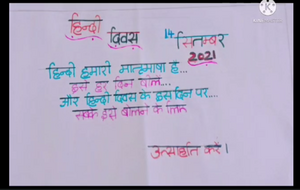 हिन्दी
दिवस
14 सितम्बर
2021
हिन्दी हमारी मातृभाषा है...
इसे हर दिन बोलें...
और हिन्दी दिवस के इस दिन पर....
सबको इसे बोलने के लिए
उत्साहित करें।